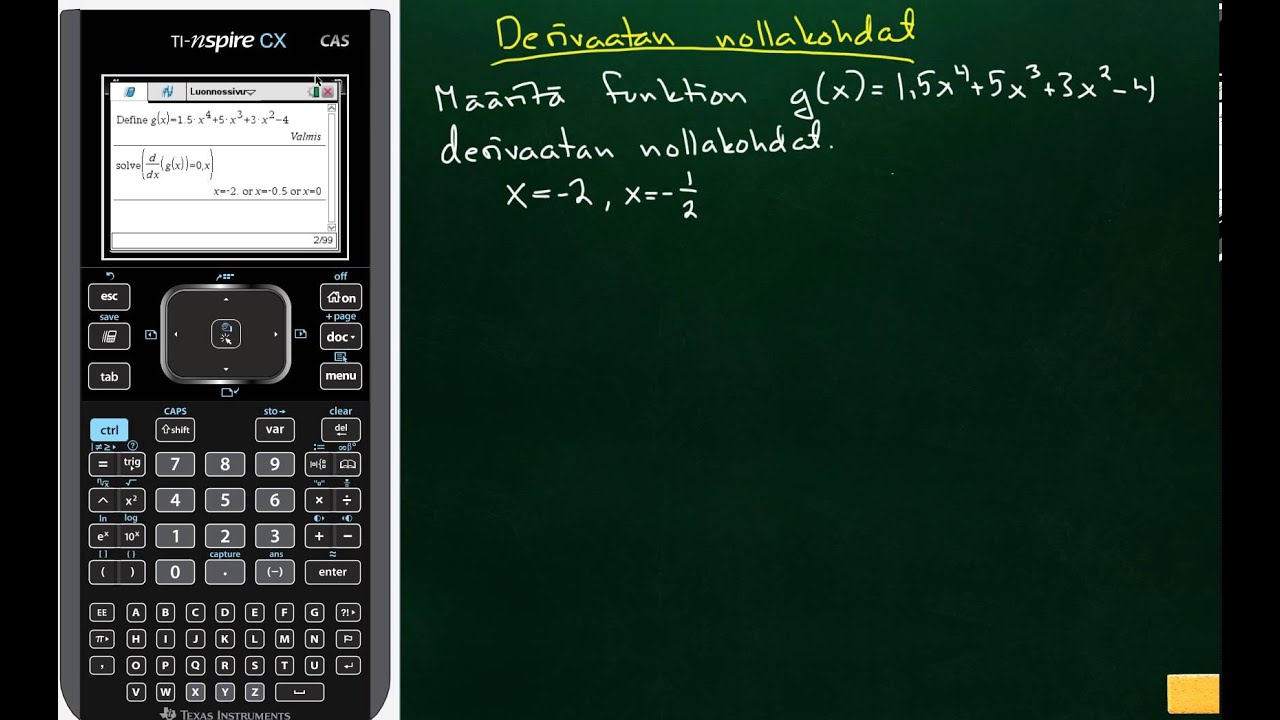 TI-nspire CX CAS
Luonnossivu
Define g(x)=1.5·x⁴+5·x³+3·x²−4
Valmis
solve(d/dx(g(x))=0,x)
x=-2. or x=-0.5 or x=0
2/99
off
esc
on
save
+ page
doc
tab
menu
CAPS sto→ clear
ctrl shift var del
= trig 7 8 9
^ x² 4 5 6 × ÷
ln log
eˣ 10ˣ 1 2 3 + −
[ ] { } capture ans ≈
( ) 0 . (−) enter
EE A B C D E F G ?!
π H I J K L M N
, O P Q R S T U
V W X Y Z
TEXAS INSTRUMENTS
Derivaatan nollakohdat
Määritä funktion g(x)=1,5x⁴+5x³+3x²−4
derivaatan nollakohdat.
x=-2, x=-1/2